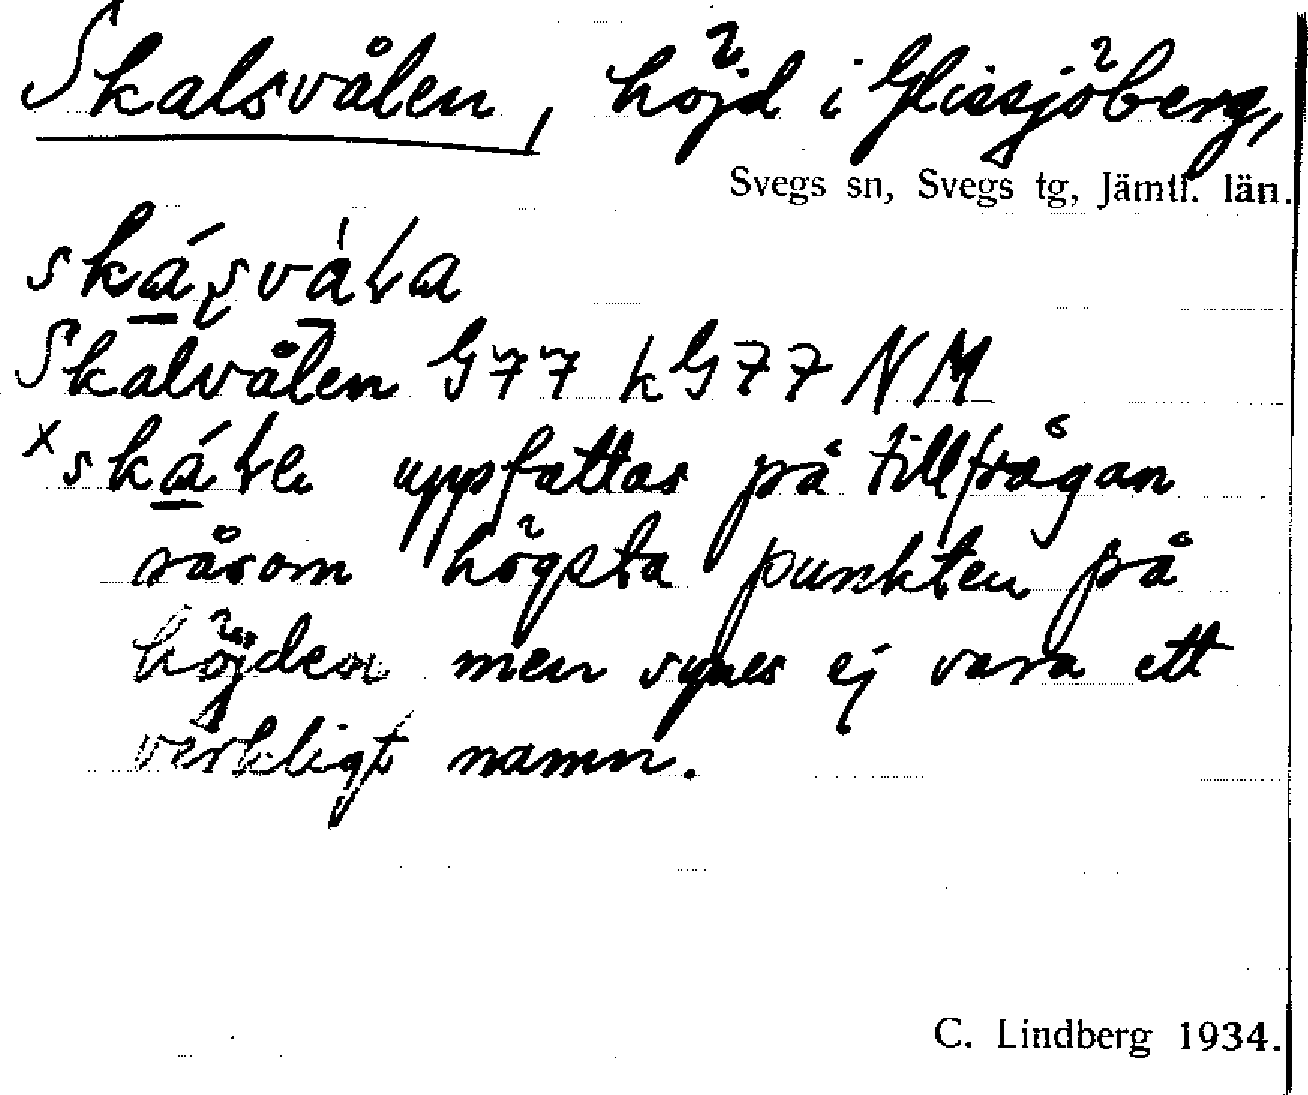 Skalsvålen, höjd i Glissjöberg,
Svegs sn, Svegs tg, Jämtl. län.
Skalvålen G77 kG77 NM
uppfattas på tillfrågan
såsom högsta punkten på
höjden men synes ej vara ett
verkligt namn.
C. Lindberg 1934.